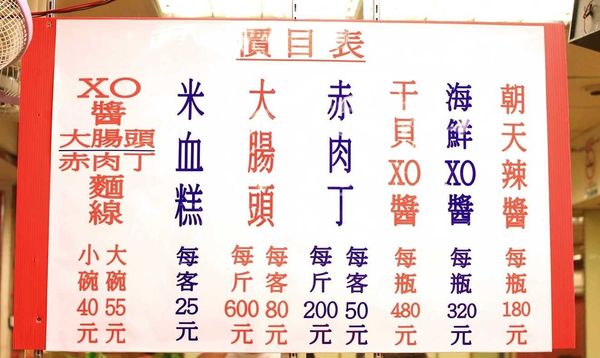 價目表
朝天辣醬
每瓶180元
海鮮XO醬
每瓶320元
干貝XO醬
每瓶480元
赤肉丁
每客50元
每斤200元
大腸頭
每客80元
每斤600元
米血糕
每客25元
XO醬
大腸頭
赤肉丁
麵線
大碗55元
小碗40元